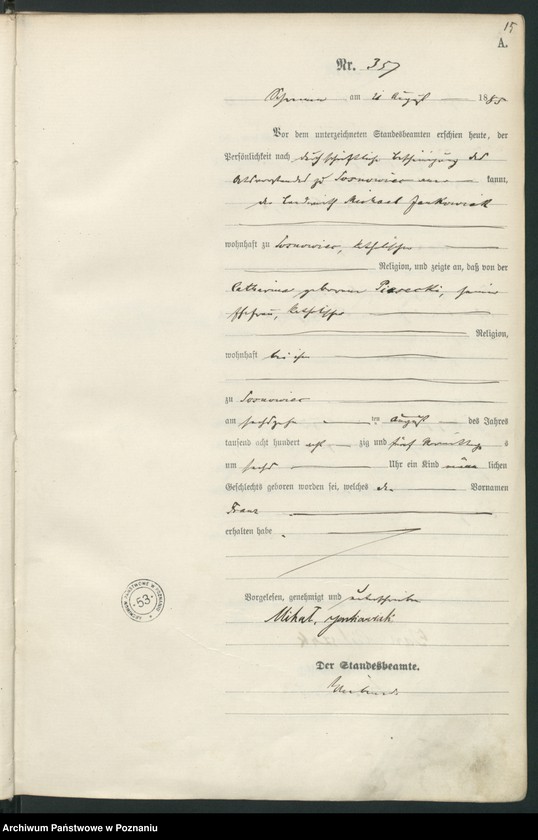 15
A.
Nr. 357
am 21 August 1885
Vor dem unterzeichneten Standesbeamten erschien heute, der
Persönlichkeit nach durch schriftliche Bescheinigung des
Ortsvorstandes zu Sosnowiec kannt,
der Landwirth Michael Jankowiak
wohnhaft zu Sosnowiec, katholischer
Religion, und zeigte an, daß von der
Catharina geborenen Piasecki, seiner
Ehefrau, katholischer
Religion,
wohnhaft bei ihm
zu Sosnowiec
am sechszehnten ten August des Jahres
tausend acht hundert acht zig und fünf Vormittags s
um sechs Uhr ein Kind männ lichen
Geschlechts geboren worden sei, welches den Vornamen
Franz
erhalten habe.
Vorgelesen, genehmigt und unterschrieben
Michał Jankowiak
Der Standesbeamte.
ARCHIWUM PAŃSTWOWE W POZNANIU
53
Archiwum Państwowe w Poznaniu